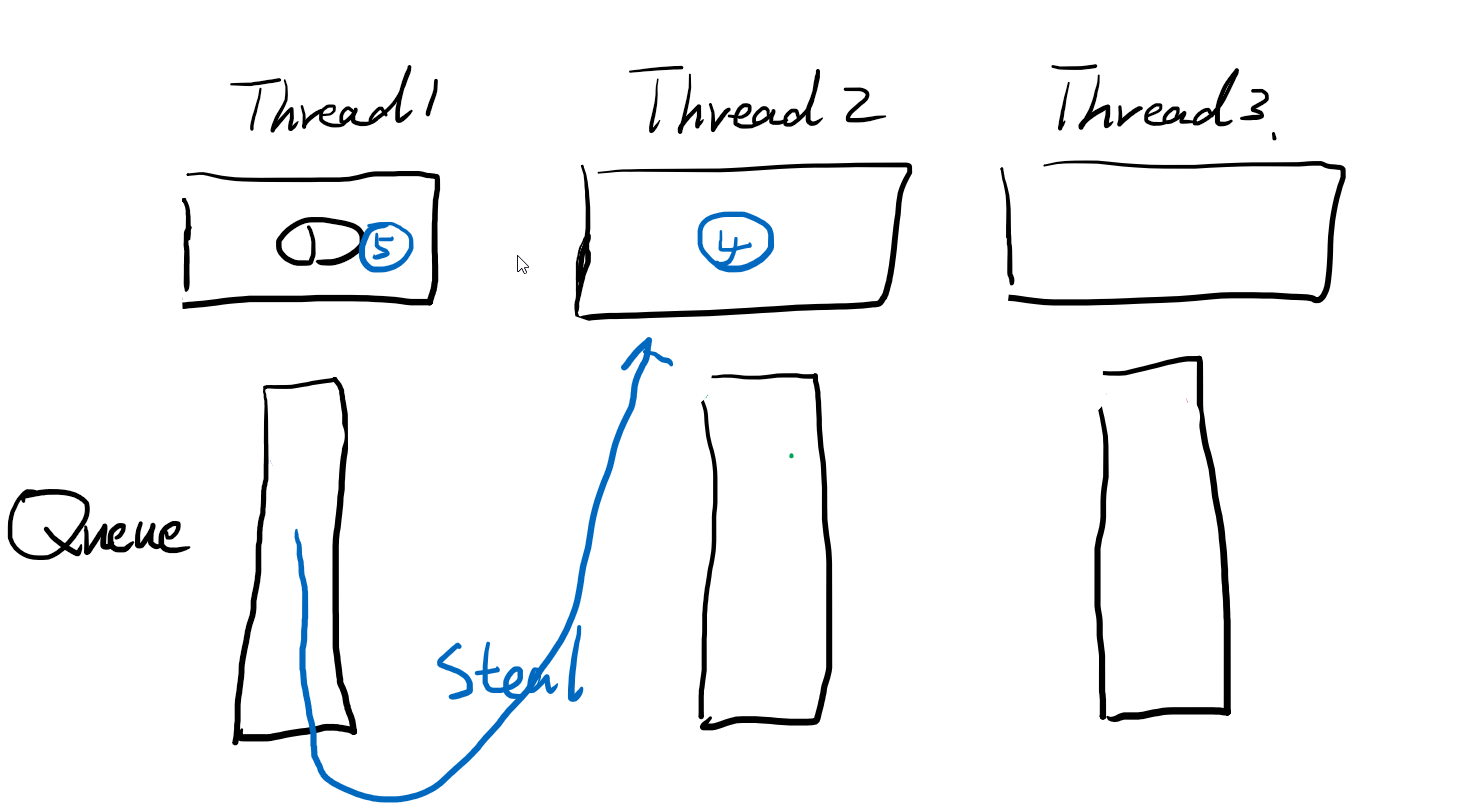 Thread 1 Thread 2 Thread 3.
1 5 4
Queue
Steal